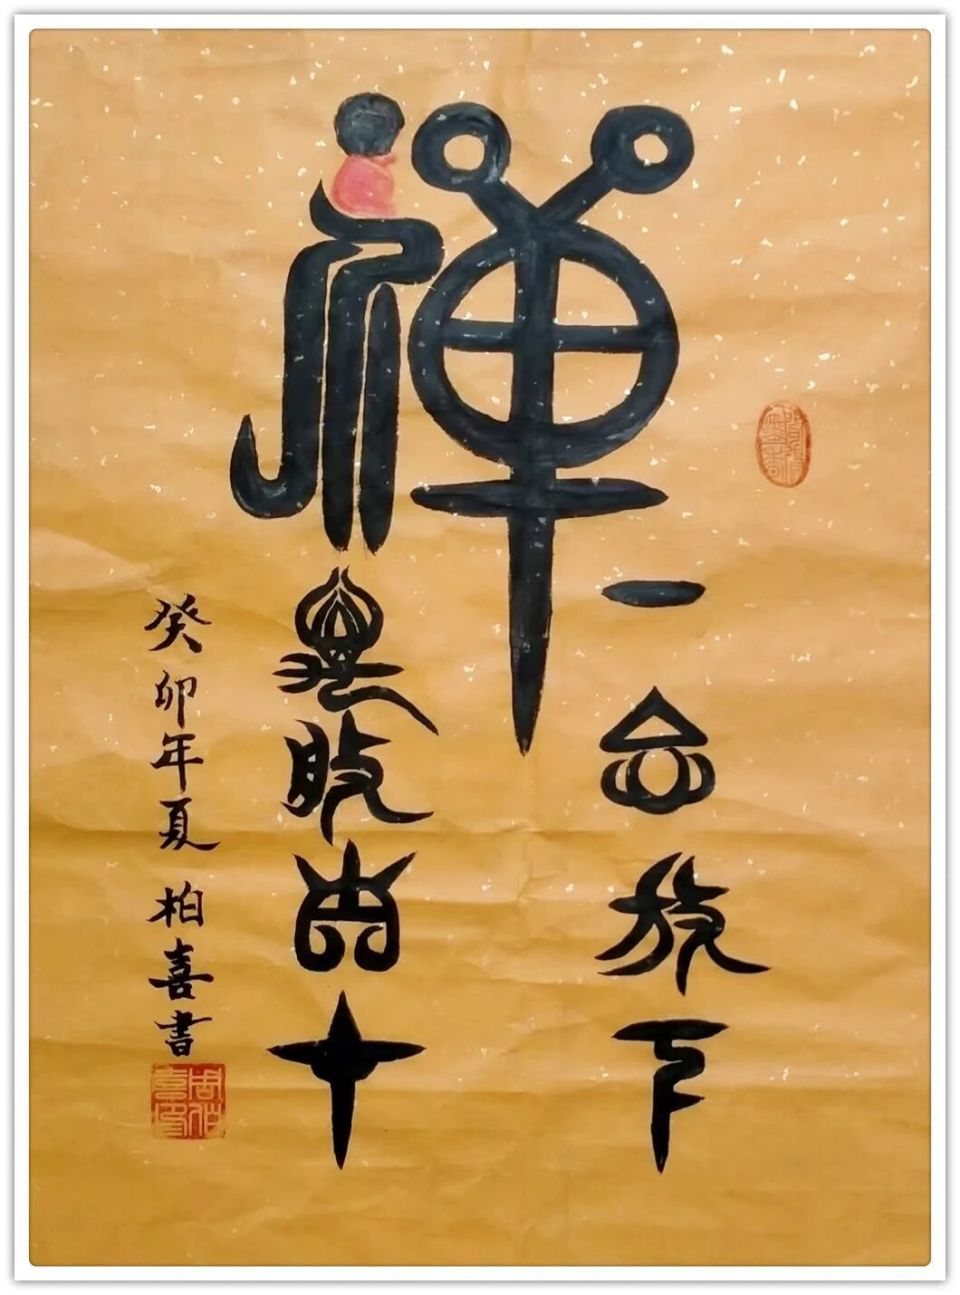 禪
一念放下
萬般自在
癸卯年夏 柏喜書